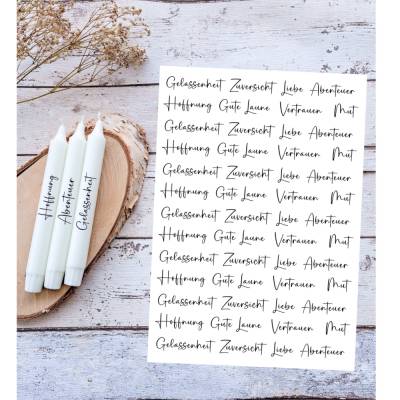 Hoffnung
Abenteuer
Gelassenheit
Gelassenheit Zuversicht Liebe Abenteuer
Hoffnung Gute Laune Vertrauen Mut
Gelassenheit Zuversicht Liebe Abenteuer
Hoffnung Gute Laune Vertrauen Mut
Gelassenheit Zuversicht Liebe Abenteuer
Hoffnung Gute Laune Vertrauen Mut
Gelassenheit Zuversicht Liebe Abenteuer
Hoffnung Gute Laune Vertrauen Mut
Gelassenheit Zuversicht Liebe Abenteuer
Hoffnung Gute Laune Vertrauen Mut
Gelassenheit Zuversicht Liebe Abenteuer
Hoffnung Gute Laune Vertrauen Mut
Gelassenheit Zuversicht Liebe Abenteuer